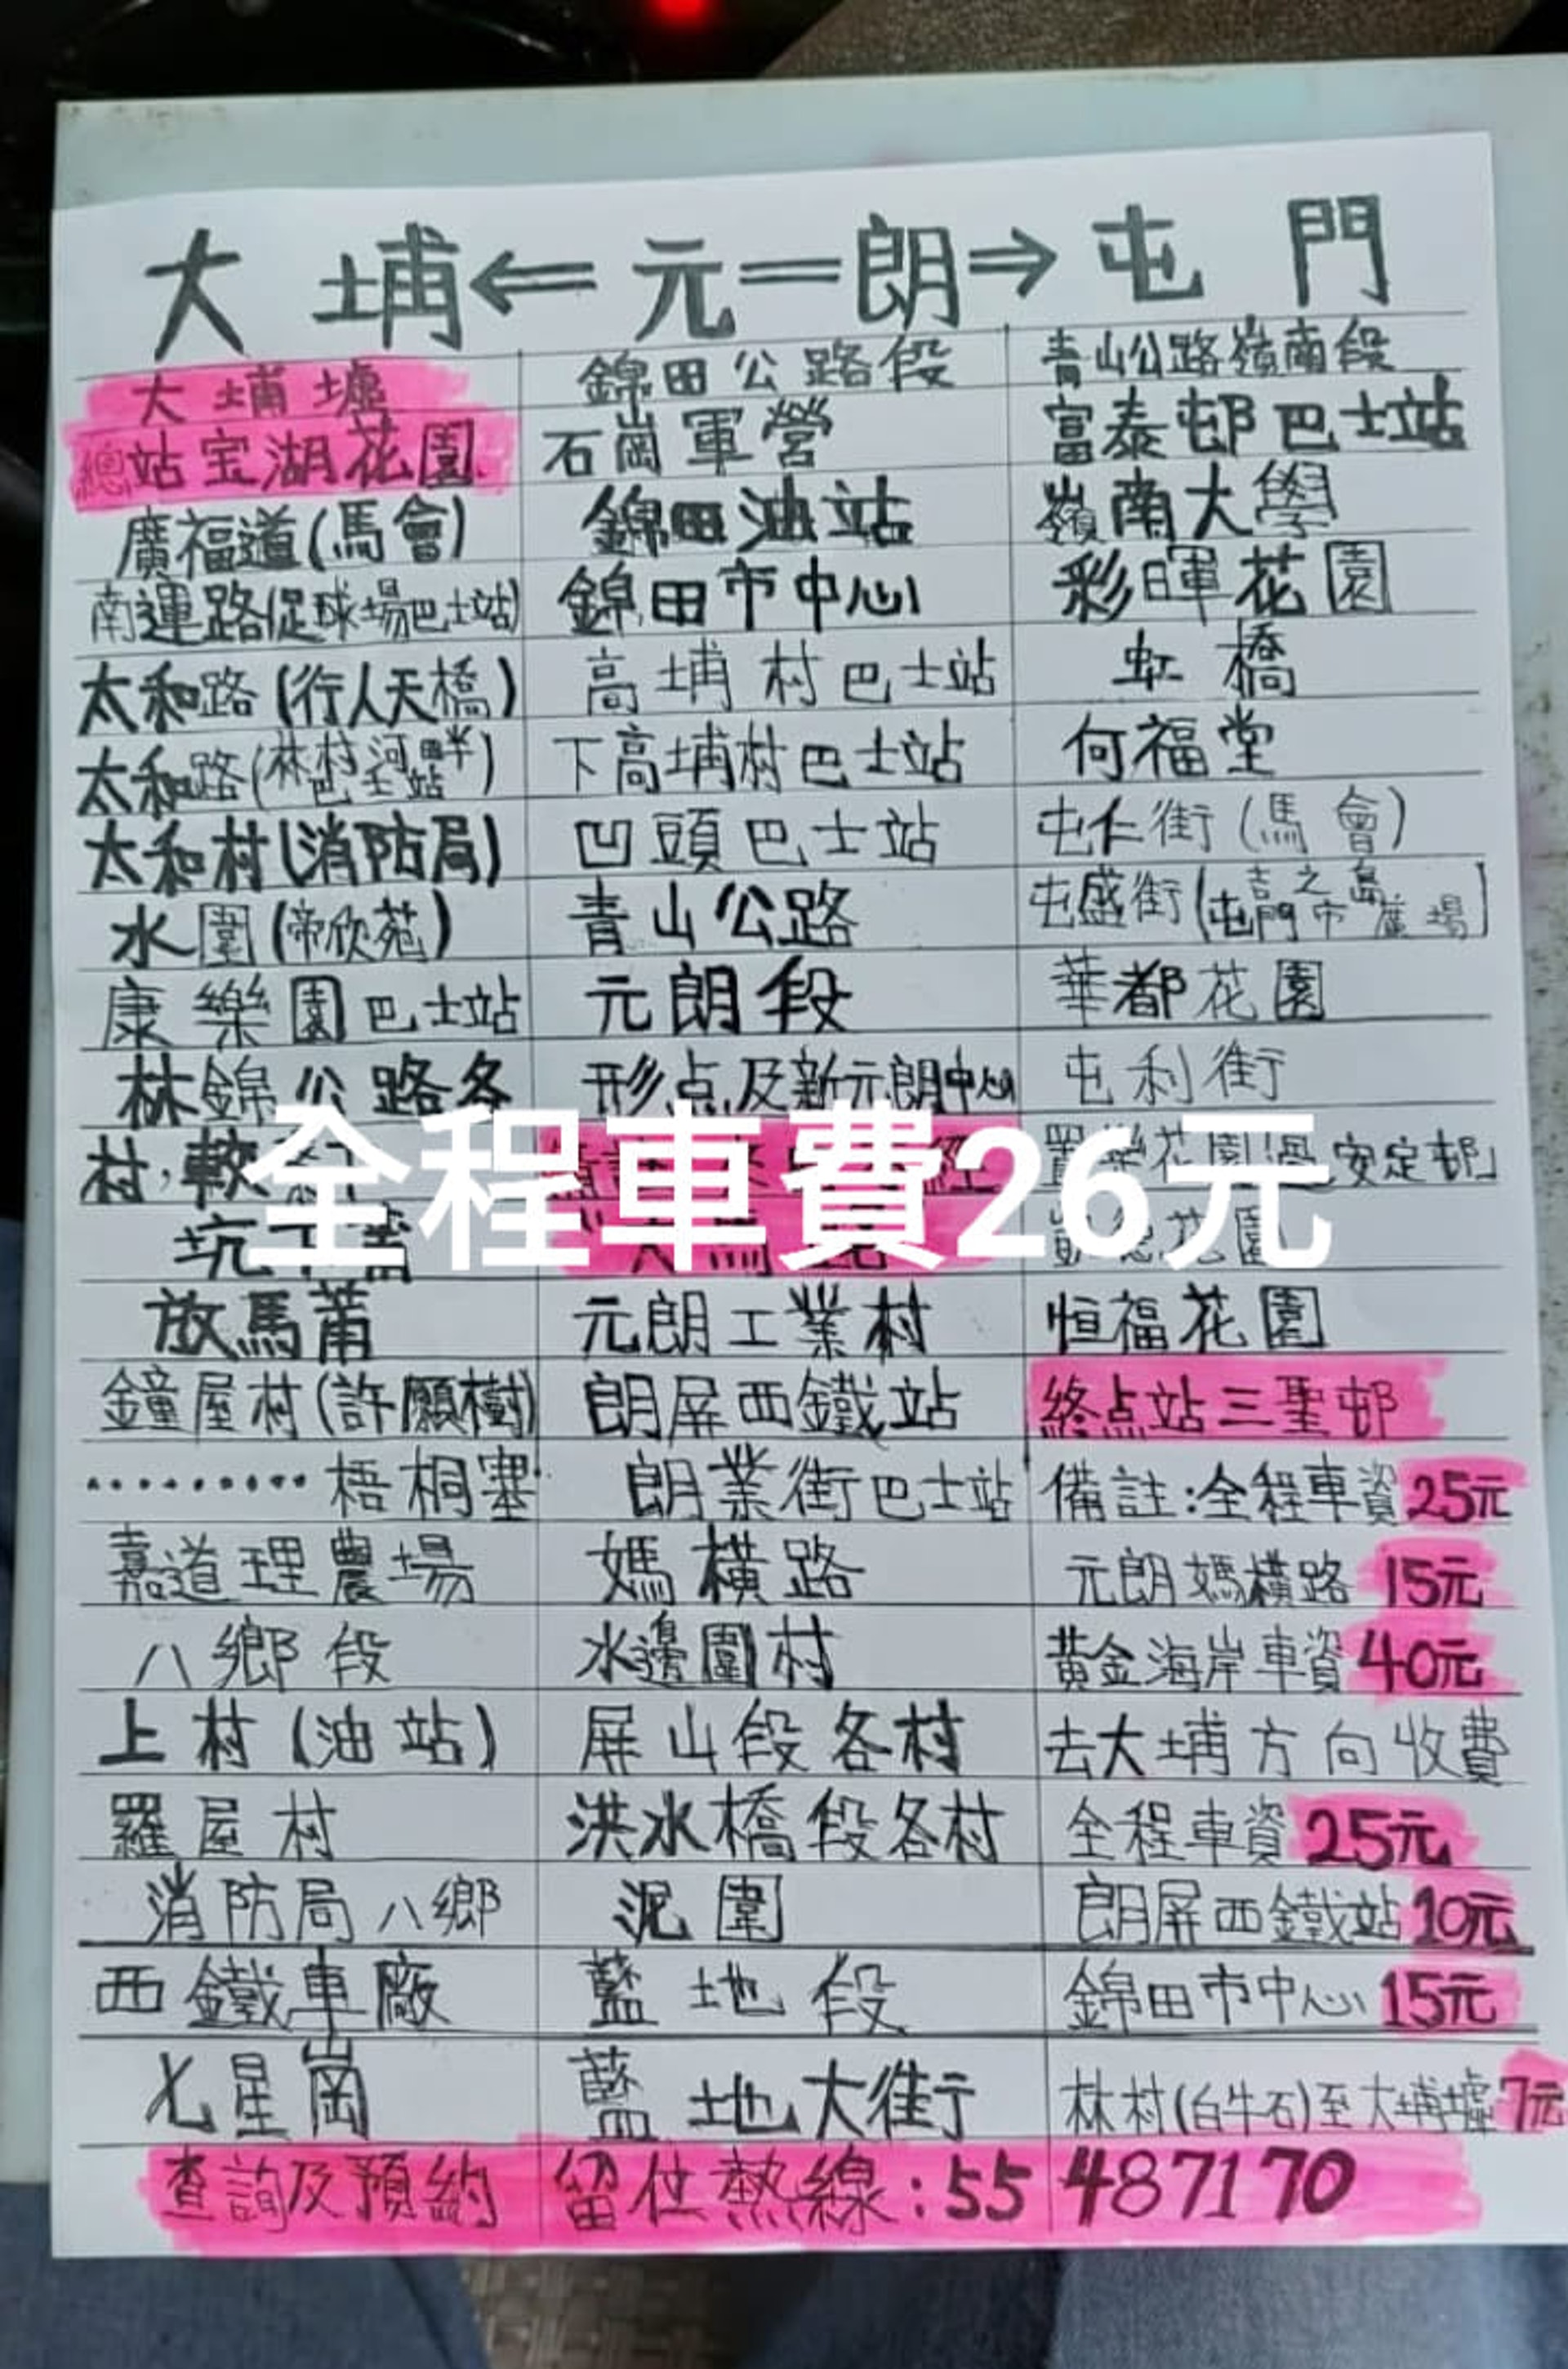 大埔⇐元=朗⇒屯門
大埔墟
總站宝湖花園
廣福道(馬會)
南運路(足球場巴士站)
太和路(行人天橋)
太和路(林村河畔巴士站)
太和村(消防局)
水圍(帝欣苑)
康樂園巴士站
林錦公路各
村,軟
坑
放馬莆
鐘屋村(許願樹)
..........梧桐塞
嘉道理農場
八鄉段
上村(油站)
羅屋村
消防局八鄉
西鐵車廠
七星崗
錦田公路段
石崗軍營
錦田油站
錦田市中心
高埔村巴士站
下高埔村巴士站
凹頭巴士站
青山公路
元朗段
形点及新元朗中心
經
大馬路
元朗工業村
朗屏西鐵站
朗業街巴士站
媽橫路
水邊圍村
屏山段各村
洪水橋段各村
泥圍
藍地段
藍地大街
青山公路嶺南段
富泰邨巴士站
嶺南大學
彩暉花園
虹橋
何福堂
屯仁街(馬會)
屯盛街(吉之島屯門市廣場)
華都花園
屯利街
置樂花園過安定邨」
花園
恒福花園
終点站三聖邨
備註:全程車資25元
元朗媽橫路 15元
黃金海岸車資40元
去大埔方向收費
全程車資25元
朗屏西鐵站10元
錦田市中心15元
林村(白牛石)至大埔墟7元
查詢及預約 留位熱線:55487170
全程車費26元